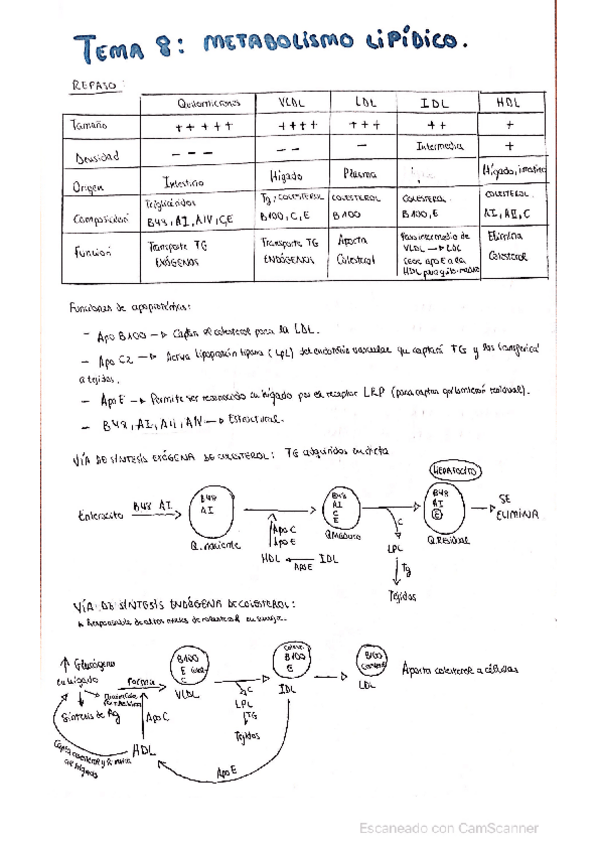 TEMA 8: METABOLISMO LIPÍDICO.
REPASO:
Quilomicrones VLDL LDL IDL HDL
Tamaño +++++ ++++ +++ ++ +
Densidad --- -- - Intermedia +
Origen Intestino Hígado Plasma Hígado, intestino
Composición Triglicéridos B48, AI, AIV, C, E Tg, COLESTEROL B100, C, E COLESTEROL B100 COLESTEROL B100, E COLESTEROL AI, AII, C
Función Transporte TG EXÓGENOS Transporte TG ENDÓGENOS Aporta Colesterol Paso intermedio de VLDL → LDL apo E a la HDL para Elimina Colesterol
Funciones de apoproteínas:
- Apo B100 → Captar el colesterol para la LDL.
- Apo C2 → Activa lipoprotein lipasa (LPL) del endotelio vascular que captará TG y los transferirá
a tejidos.
- Apo E → Permite ser reconocido en hígado por el receptor LRP (para captar quilomicrón residual).
- B48, AI, AII, AIV → Estructural.
VÍA DE SÍNTESIS EXÓGENA DE COLESTEROL: TG adquiridos en dieta
HEPATOCITO
Enterocito B48 AI → B48 AI → B48 AI C E → B48 AI E → SE ELIMINA
Q. naciente Q. Maduro Q. Residual
Apo C
Apo E
HDL ← Apo E IDL
C
LPL
Tg
Tejidos
VÍA DE SÍNTESIS ENDÓGENA DE COLESTEROL:
↳ Responsable de altos niveles de colesterol en sangre.
↑ Glucógeno en hígado
Síntesis de Ag
Forma
B100 E C
VLDL
C
LPL
TG
Tejidos
B100 E
IDL
B100
LDL
Aporta colesterol a células
Apo C
HDL
Apo E
Escaneado con CamScanner